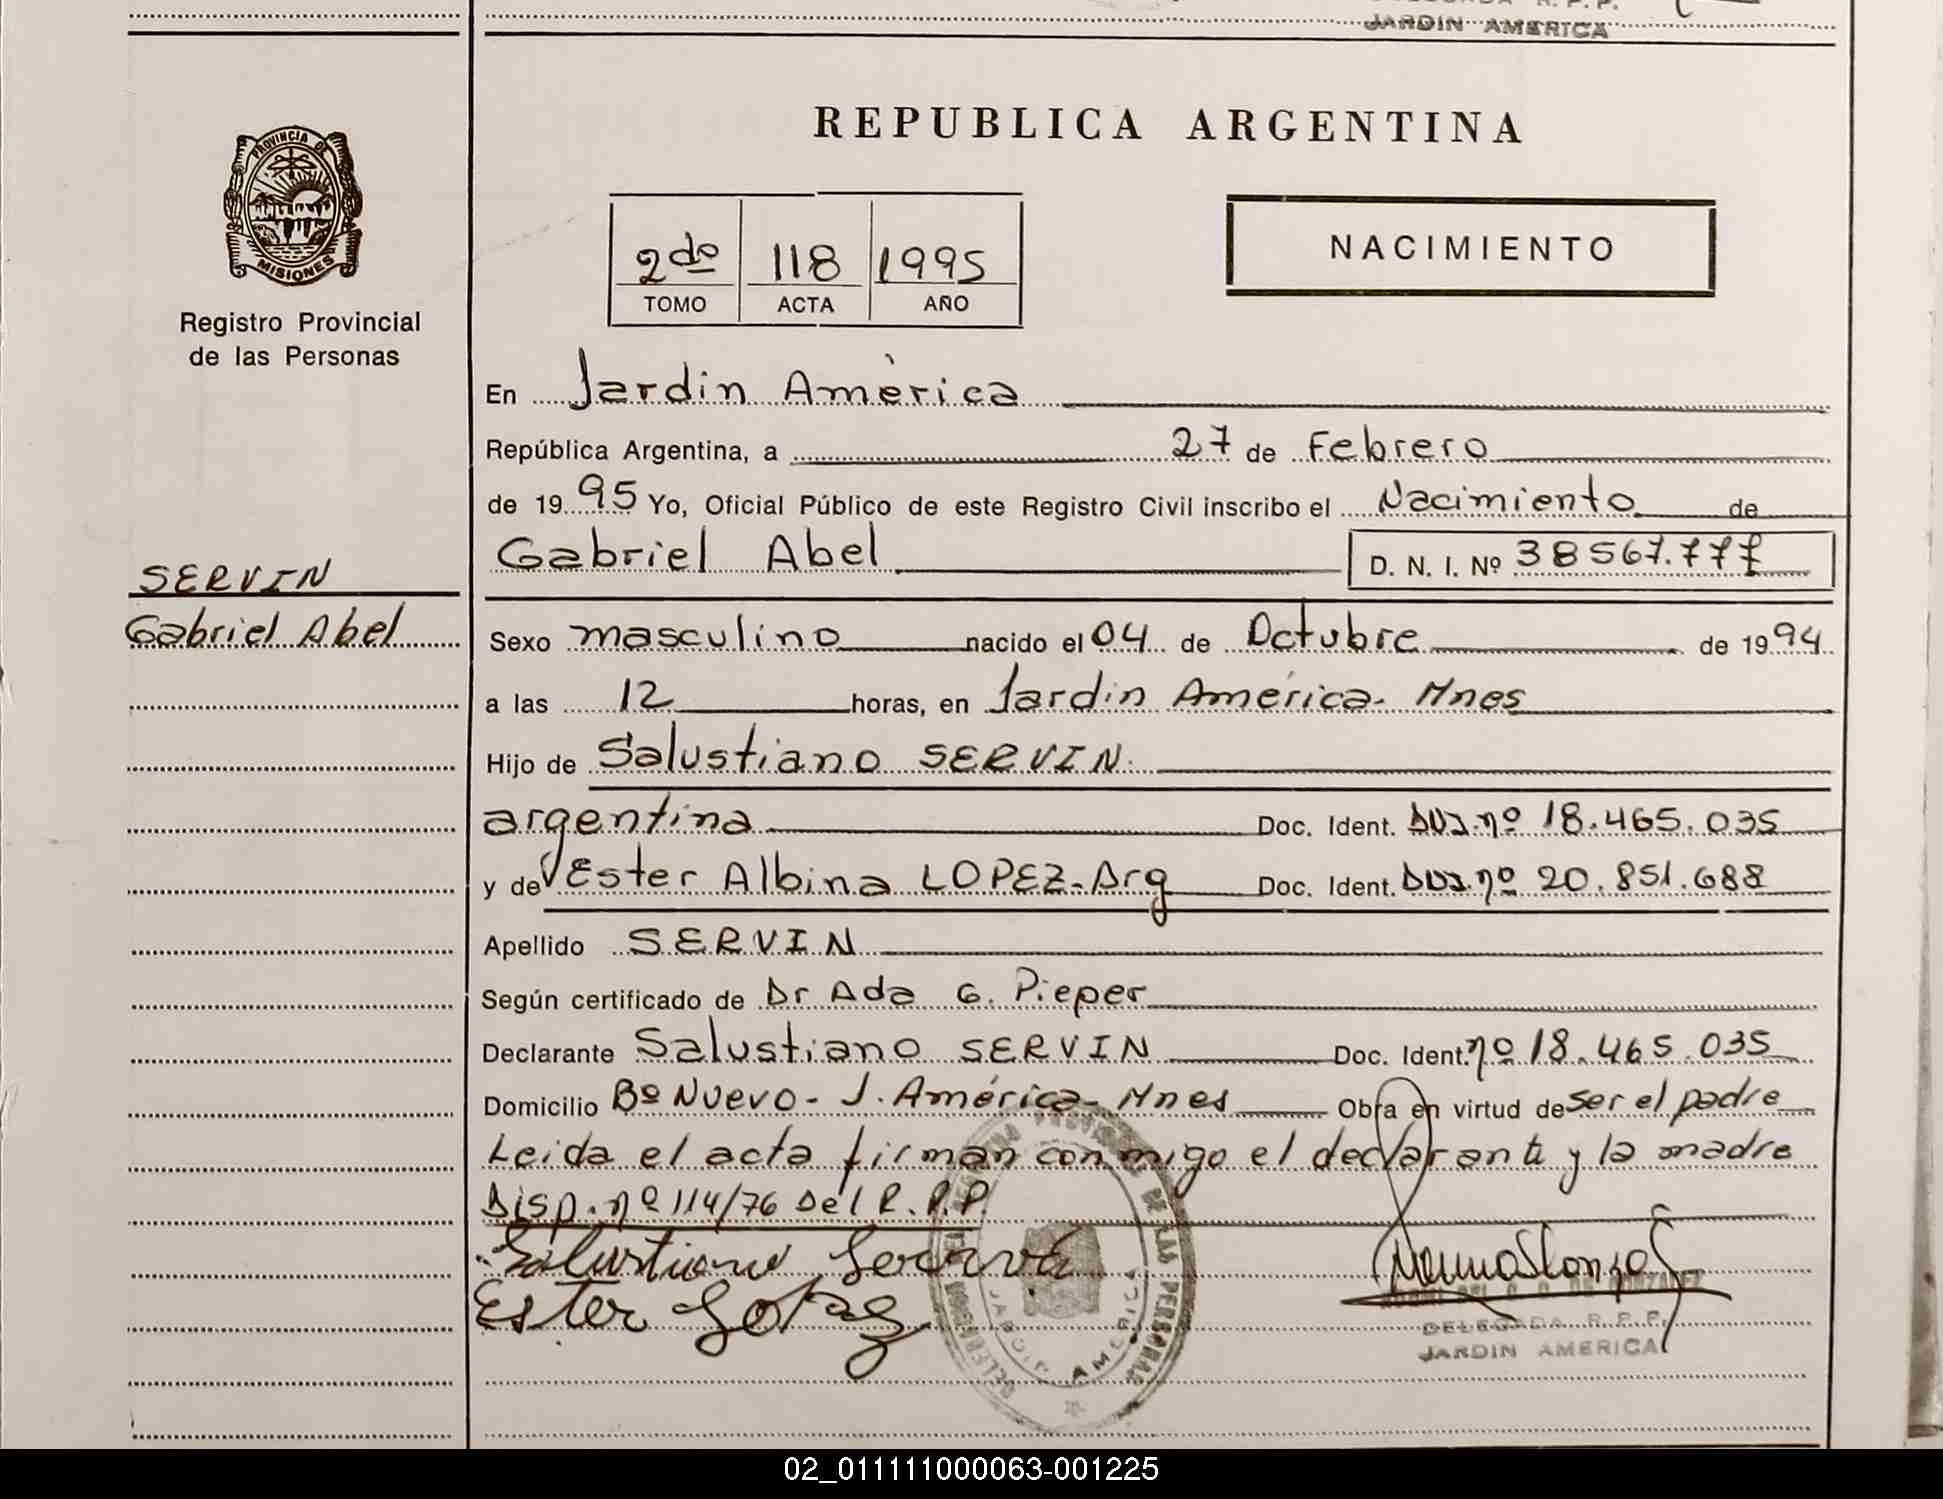 JARDIN AMERICA
PROVINCIA DE
MISIONES
Registro Provincial
de las Personas
SERVIN
Gabriel Abel
REPUBLICA ARGENTINA
2do 118 1995
TOMO ACTA AÑO
NACIMIENTO
En Jardin América
República Argentina, a 27 de Febrero
de 1995 Yo, Oficial Público de este Registro Civil inscribo el Nacimiento de
Gabriel Abel D. N. I. Nº 38567.777
Sexo masculino nacido el 04 de Octubre de 1994
a las 12 horas, en Jardin América- Mnes
Hijo de Salustiano SERVIN.
argentina Doc. Ident. DUJ.nº 18.465.035
y de Ester Albina LOPEZ-Arg Doc. Ident. DUJ.nº 20.851.688
Apellido SERVIN
Según certificado de Dr Ada G. Pieper
Declarante Salustiano SERVIN Doc. Ident. nº 18.465.035
Domicilio Bº Nuevo- J. América- Mnes Obra en virtud de ser el padre
Leida el acta firman conmigo el declarante y la madre
Disp. nº 114/76 Del R.P.P.
Salustiano
Ester Lopez
DELEGADA R.P.P.
JARDIN AMERICA
DE LAS PERSONAS
JARDIN AMERICA
02_011111000063-001225